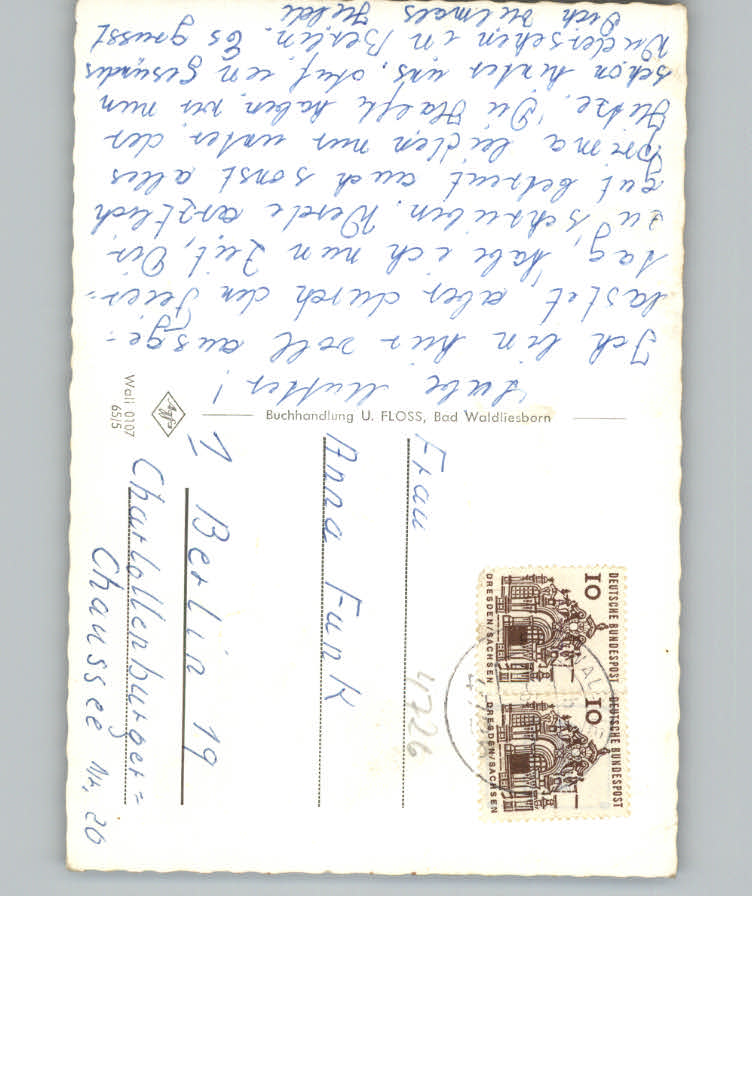 Liebe Mutter!
Ich bin hier voll ausge-
lastet, aber durch den Feier-
tag, habe ich nun Zeit, Dir
zu schreiben. Werde ärztlich
gut betreut auch sonst alles
prima leiden nur unter der
Hitze. Die Hälfte haben wir nun
schon hinter uns, auf ein gesundes
Wiedersehen in Berlin. Es grüsst
Dich vielmals Heldi
Buchhandlung U. FLOSS, Bad Waldliesborn
Agfa
Wali 0107
65/5
DEUTSCHE BUNDESPOST
10
DRESDEN/SACHSEN
DEUTSCHE BUNDESPOST
10
DRESDEN/SACHSEN
4726
Frau
Anna Funk
1 Berlin 19
Charlottenburger=
Chaussee Nr. 20